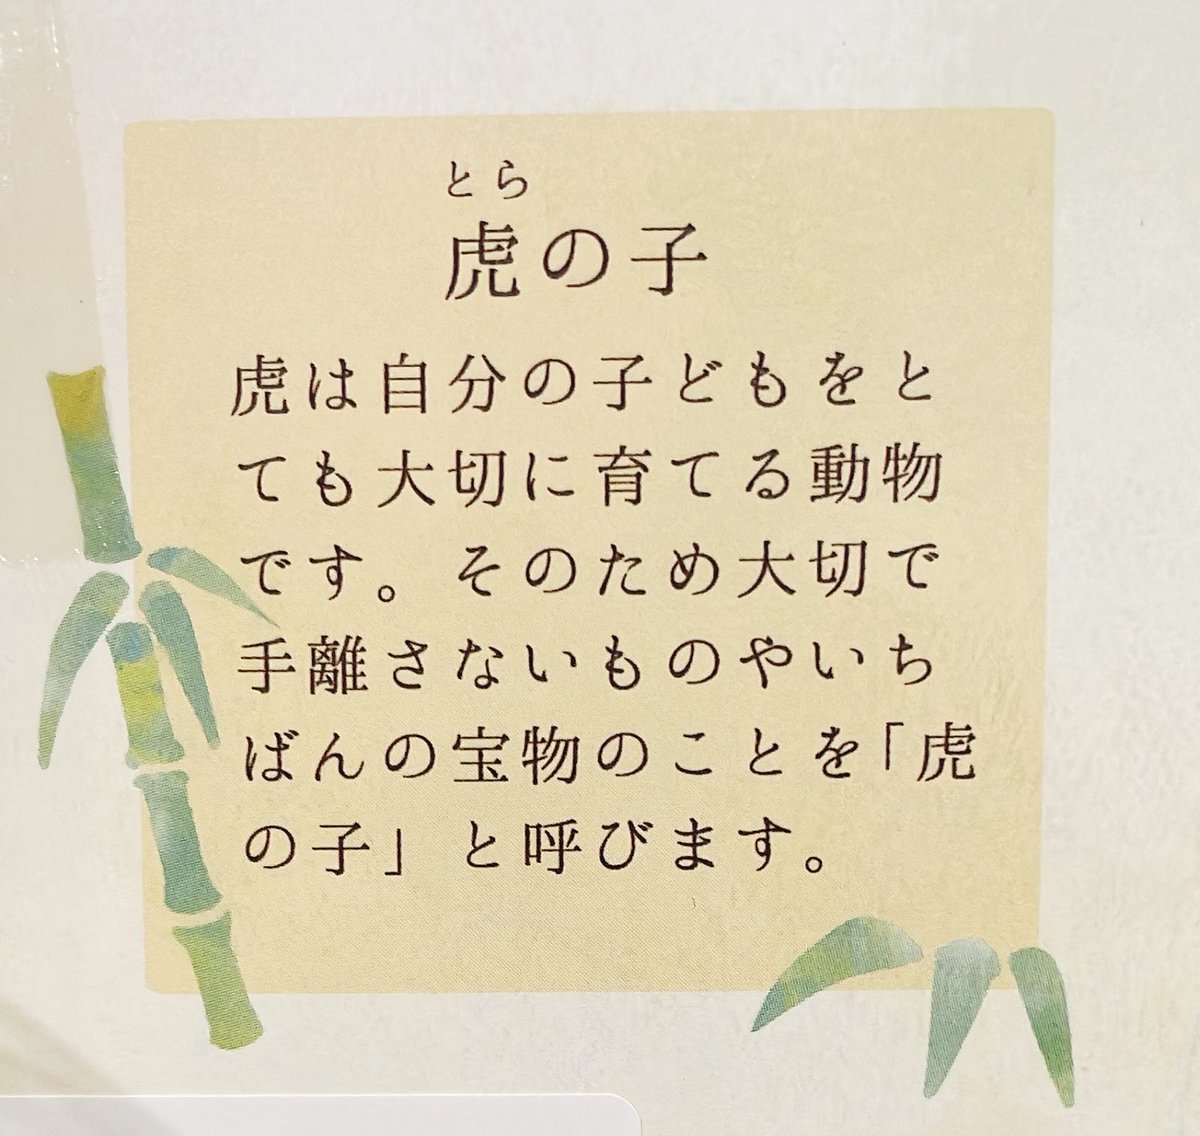 とら
虎の子
虎は自分の子どもをと
ても大切に育てる動物
です。そのため大切で
手離さないものやいち
ばんの宝物のことを「虎
の子」と呼びます。